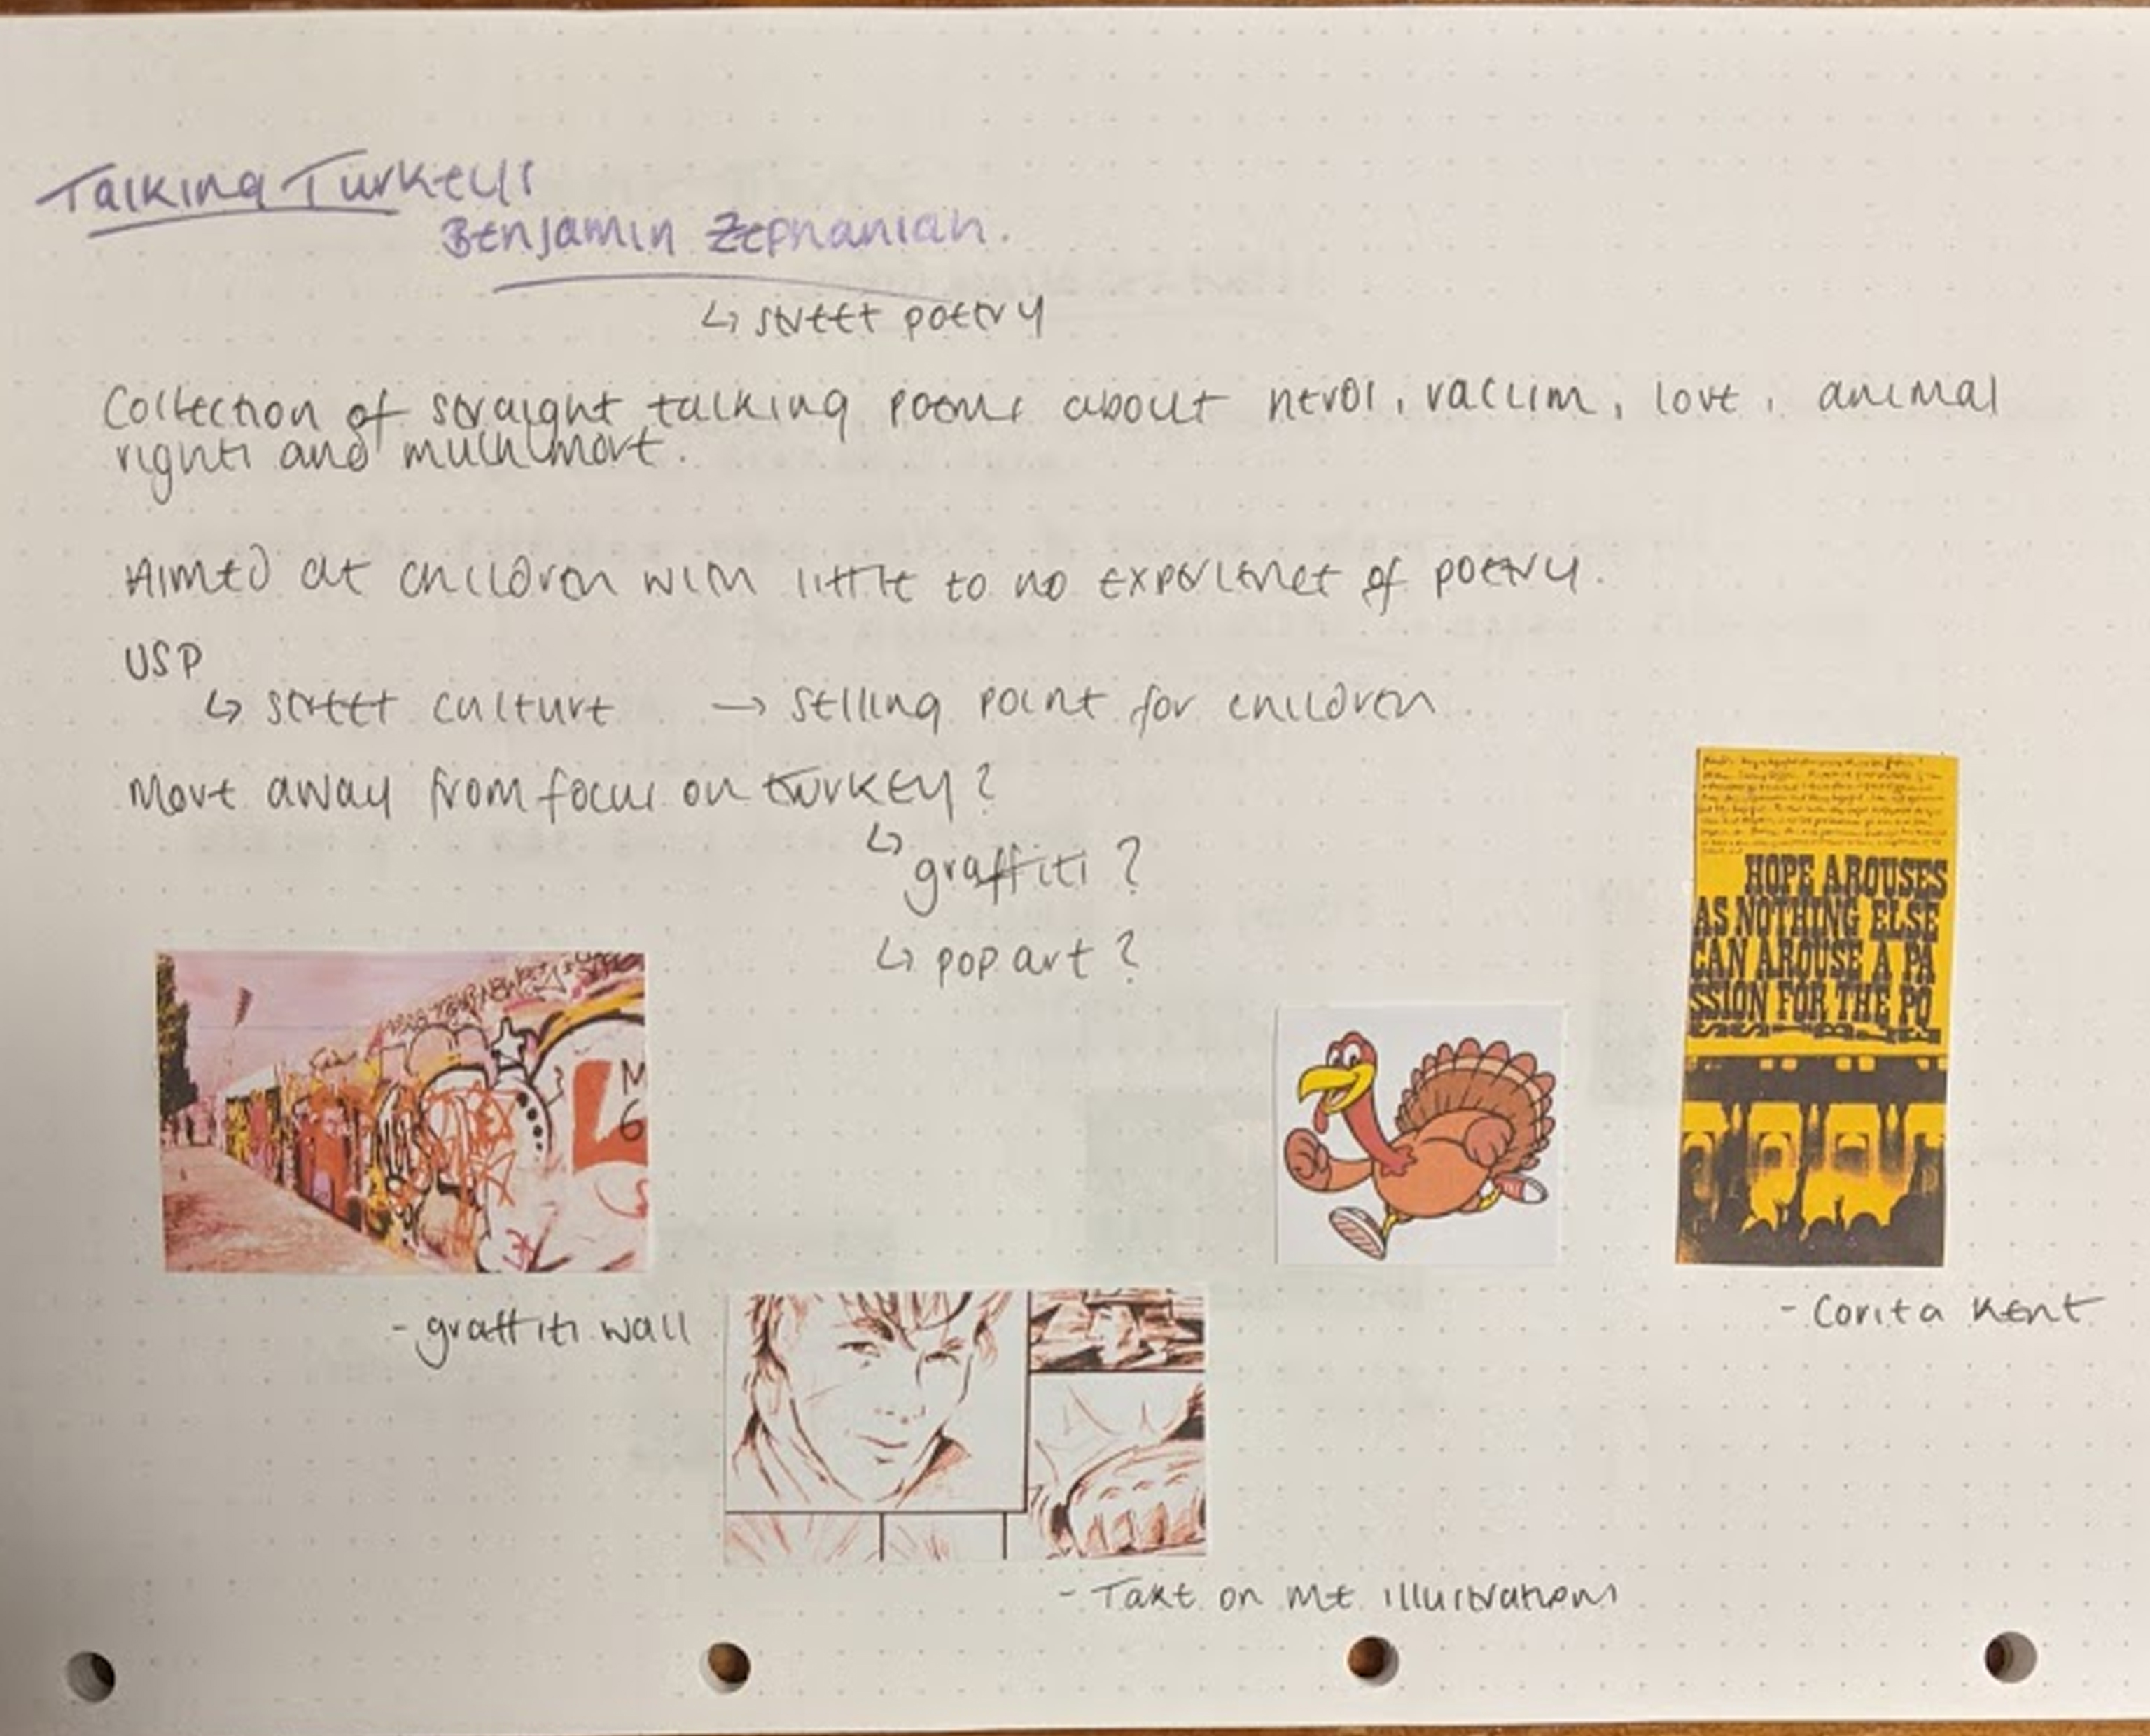 Talking Turkeys
Benjamin Zephaniah.
↳ street poetry
Collection of straight talking poems about heros, racism, love, animal
rights and much more.
Aimed at children with little to no experience of poetry.
USP
↳ street culture → selling point for children
Move away from focus on turkey?
↳ graffiti?
↳ pop art?
HOPE AROUSES
AS NOTHING ELSE
CAN AROUSE A PA
SSION FOR THE PO
M
6
- graffiti wall
- Corita Kent
- Take on me illustrations